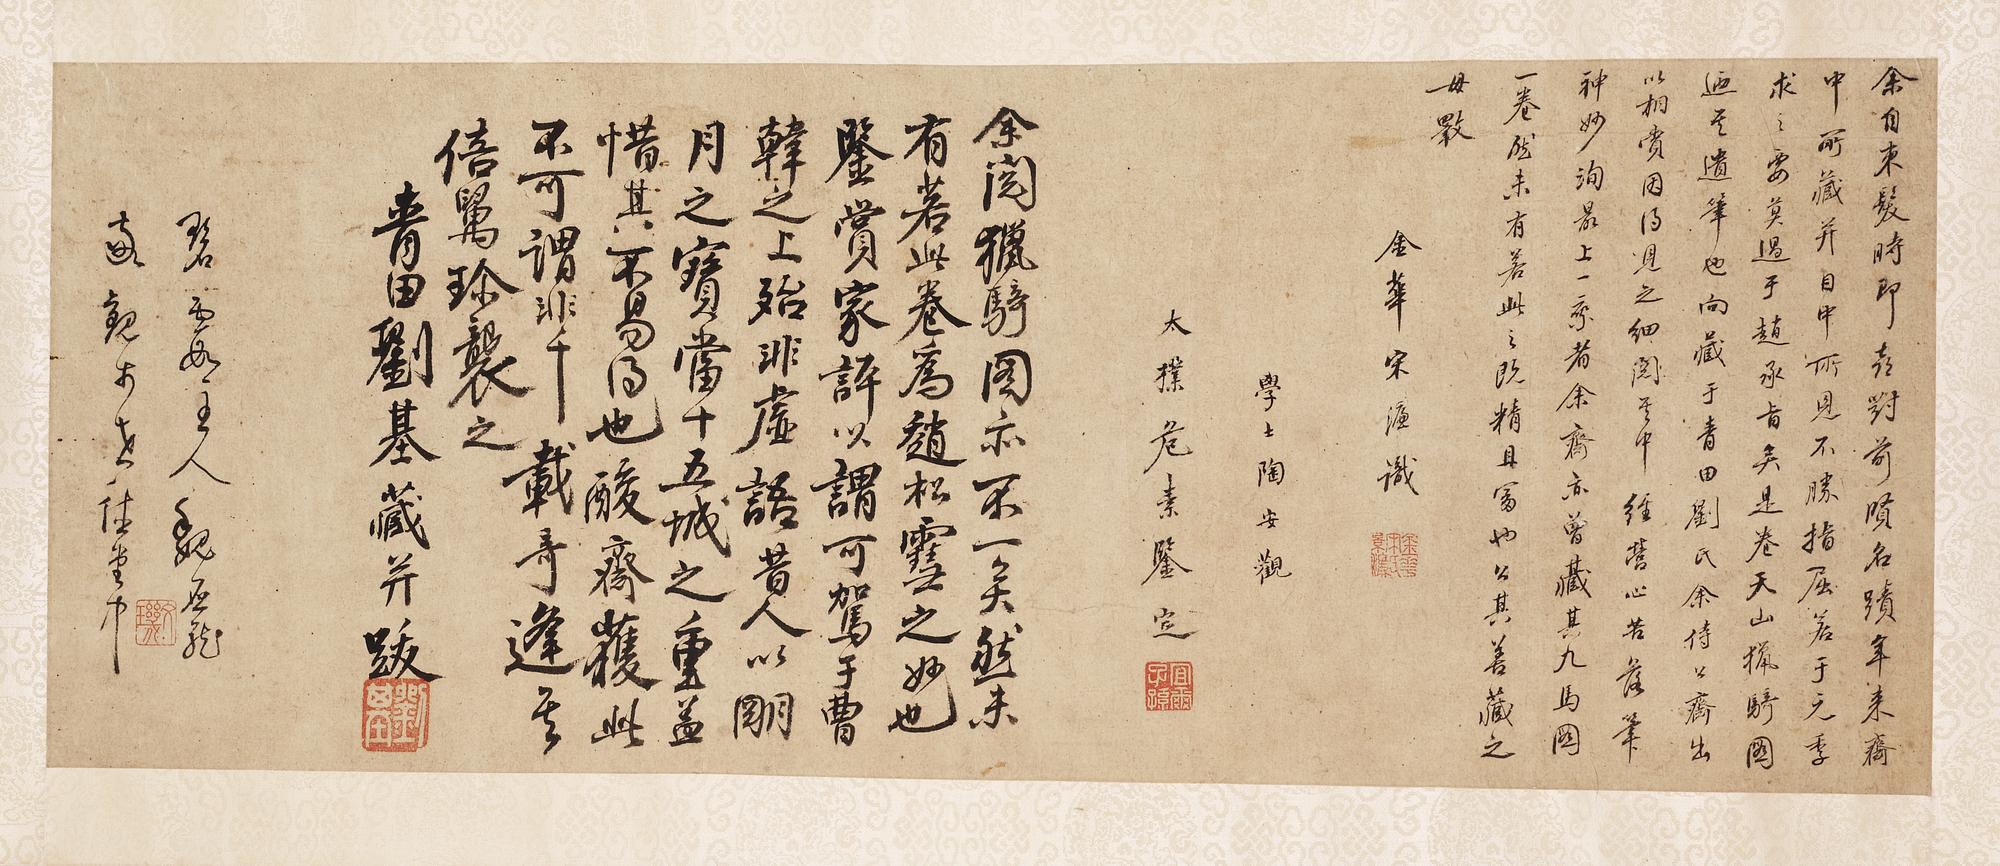 余自束髮時即喜對前賢名蹟年来齋
中所藏并目中所見不勝指屈若于元季
求之要莫過于趙承旨矣是卷天山猟騎圖
迺其遺筆也向藏于青田劉氏余侍公齋出
以相賞因得見之細閱其中經營心苦落筆
神妙洵最上一乘者余齋亦曾藏其九馬圖
一卷然未有若此之既精且富也公其善藏之
毋斁
金華宋濂識
學士陶安觀
太樸危素鑒定
余閱獵騎圖亦不一矣然未
有若此卷為趙松雪之妙也
鑒賞家評以謂可駕于曹
韓之上殆非虛語昔人以明
月之寶當十五城之重益
惜其不易得也酸齋獲此
不可謂非千載奇逢其
倍罵珍襲之
青田劉基藏并跋
碧雲主人觀
敬觀于世經堂中